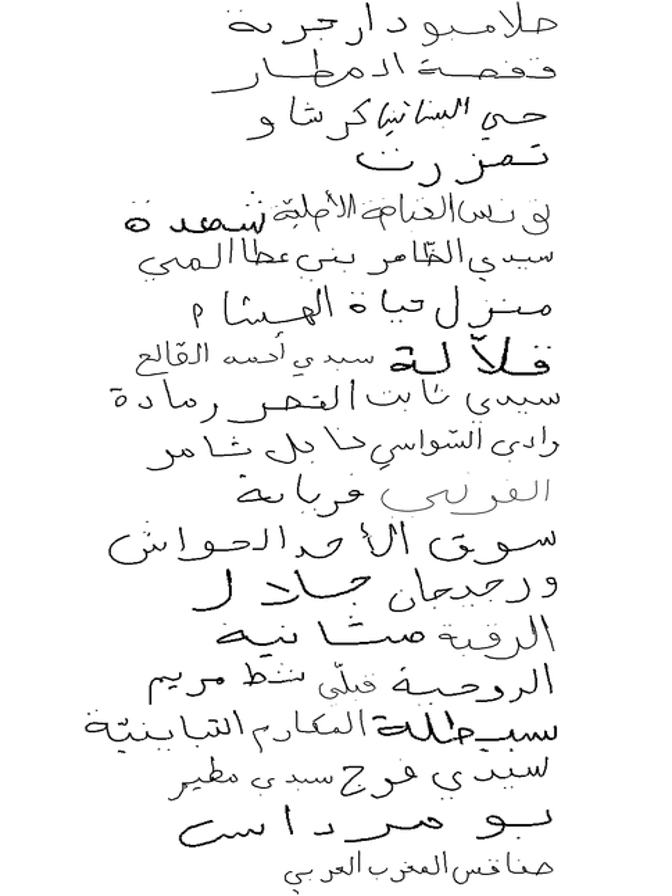 صلامبو دار جربة
قفصة المطار
حي البساتين كرشاو
تمزرت
تونس شهدة
سيدي الظاهر بني عطا المي
منزل حياة الهشام
قلالة سيدي أحمد القالع
سيدي ثابت القصر رمادة
وادي الشواسي نابل شامر
فريانة
سوق الأحد الحواش
ورجيجان جلال
الرقبة مشانية
الروحية قبلّي شط مريم
سبيطلة المكارم التباينيّة
سيدي فرج سيدي مطير
بو مرداس
صفاقس المغرب العربي